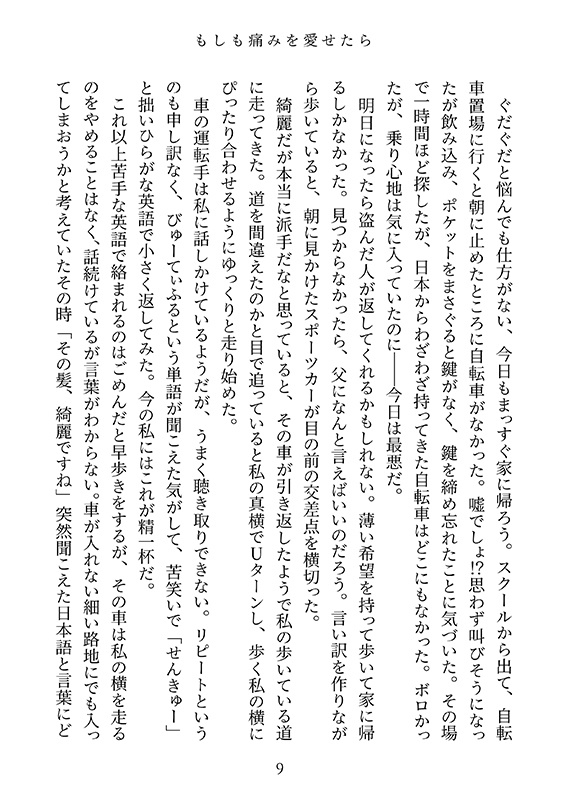 もしも痛みを愛せたら
ぐだぐだと悩んでも仕方がない、今日もまっすぐ家に帰ろう。スクールから出て、自転
車置場に行くと朝に止めたところに自転車がなかった。嘘でしょ!?思わず叫びそうになっ
たが飲み込み、ポケットをまさぐると鍵がなく、鍵を締め忘れたことに気づいた。その場
で一時間ほど探したが、日本からわざわざ持ってきた自転車はどこにもなかった。ボロかっ
たが、乗り心地は気に入っていたのに――今日は最悪だ。
明日になったら盗んだ人が返してくれるかもしれない。薄い希望を持って歩いて家に帰
るしかなかった。見つからなかったら、父になんと言えばいいのだろう。言い訳を作りなが
ら歩いていると、朝に見かけたスポーツカーが目の前の交差点を横切った。
綺麗だが本当に派手だなと思っていると、その車が引き返したようで私の歩いている道
に走ってきた。道を間違えたのかと目で追っていると私の真横でUターンし、歩く私の横に
ぴったり合わせるようにゆっくりと走り始めた。
車の運転手は私に話しかけているようだが、うまく聴き取りできない。リピートという
のも申し訳なく、びゅーてぃふるという単語が聞こえた気がして、苦笑いで「せんきゅー」
と拙いひらがな英語で小さく返してみた。今の私にはこれが精一杯だ。
これ以上苦手な英語で絡まれるのはごめんだと早歩きをするが、その車は私の横を走る
のをやめることはなく、話続けているが言葉がわからない。車が入れない細い路地にでも入っ
てしまおうかと考えていたその時「その髪、綺麗ですね」突然聞こえた日本語と言葉にど
9